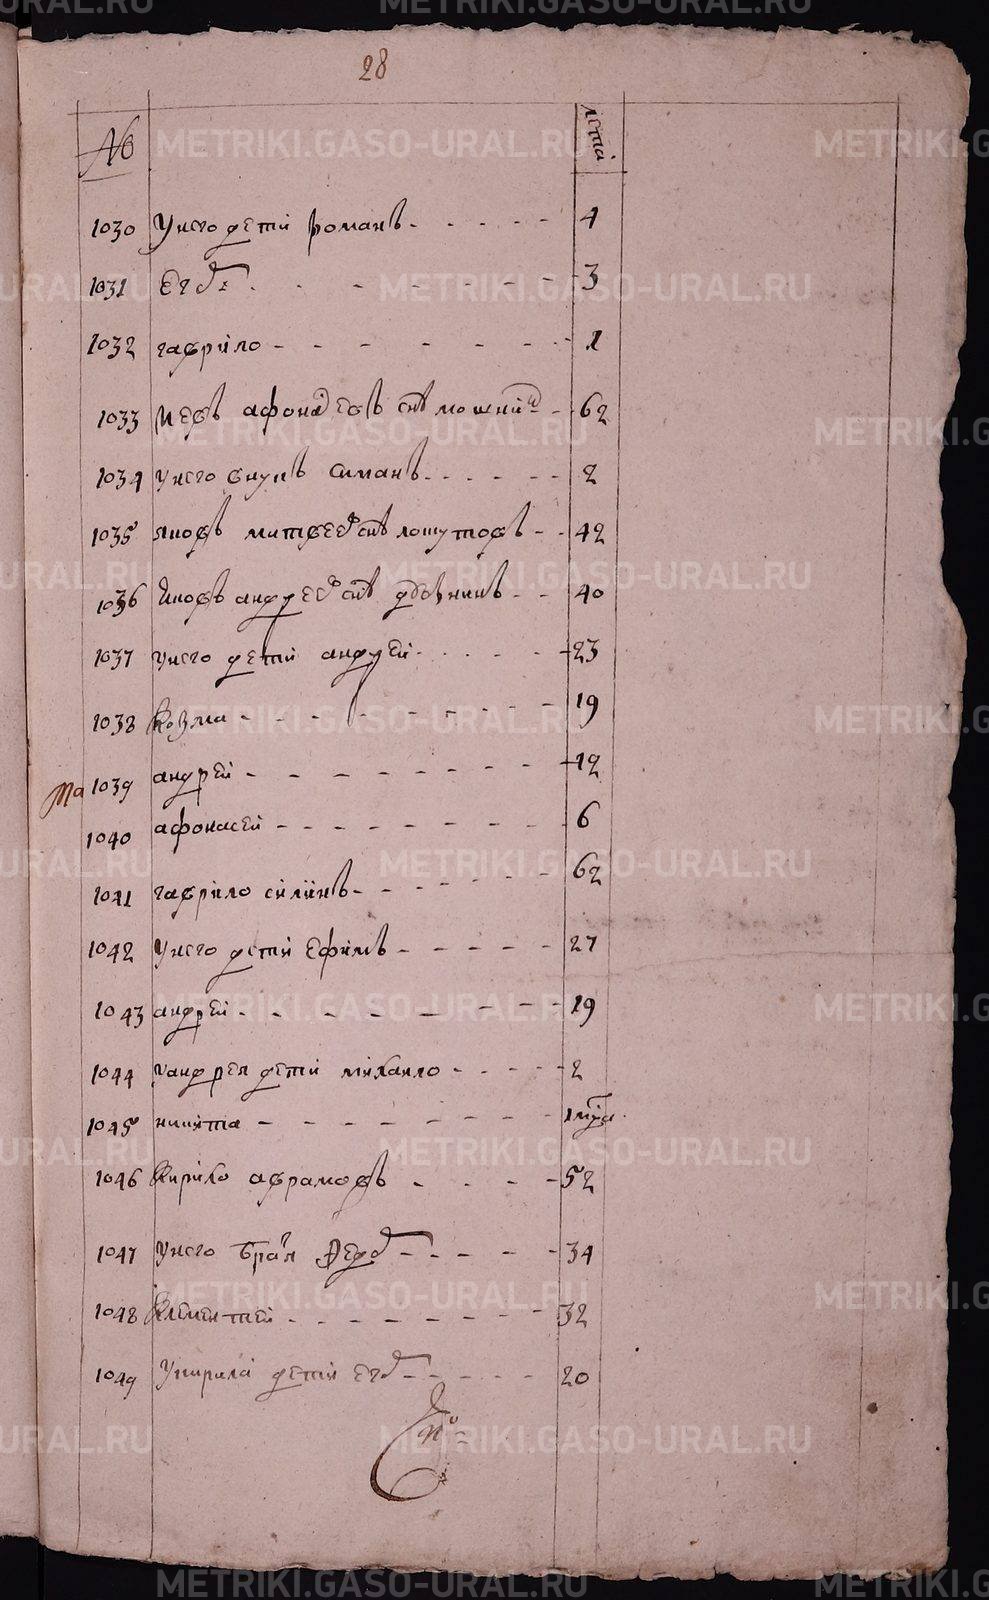 28
№ лета
1030 У него дети романъ 4
1031 егоръ 3
1032 гаврило 1
1033 иевъ афонасьевъ снъ 62
1034 У него внукъ симанъ 2
1035 яковъ матвеевъ снъ лошутовъ 42
1036 Яковъ андреевъ снъ 40
1037 У него дети андрей 23
1038 козма 19
та 1039 андрей 12
1040 афонасей 6
1041 гаврило силинъ 62
1042 У него дети ефимъ 27
1043 андрей 19
1044 У андрея дети михаило 2
1045 никита 1
1046 Кирило аврамовъ 52
1047 У него братья федоръ 34
1048 Клементей 32
1049 У кирила дети егоръ 20
METRIKI.GASO-URAL.RU